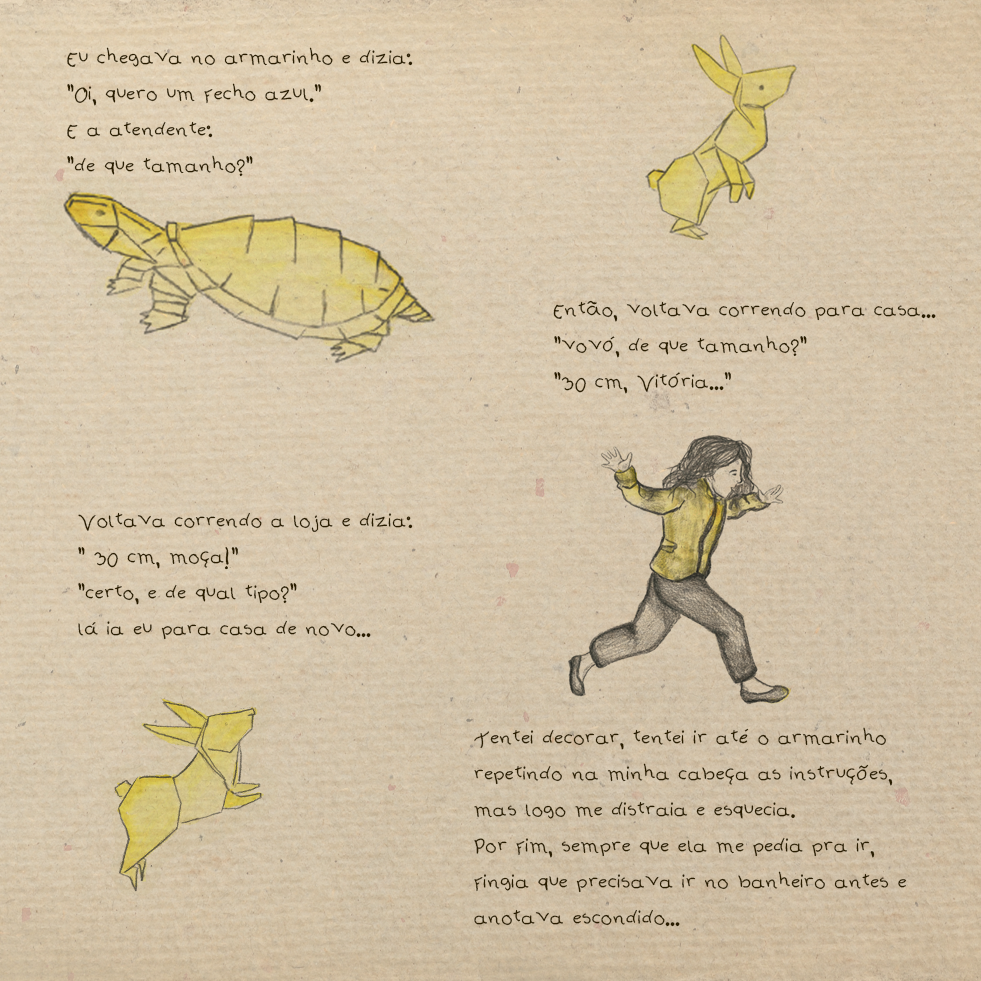 Eu chegava no armarinho e dizia:
"Oi, quero um fecho azul."
E a atendente:
"de que tamanho?"
Então, voltava correndo para casa...
"vovó, de que tamanho?"
"30 cm, Vitória..."
Voltava correndo a loja e dizia:
" 30 cm, moça!"
"certo, e de qual tipo?"
lá ia eu para casa de novo...
Tentei decorar, tentei ir até o armarinho
repetindo na minha cabeça as instruções,
mas logo me distraia e esquecia.
Por fim, sempre que ela me pedia pra ir,
fingia que precisava ir no banheiro antes e
anotava escondido...